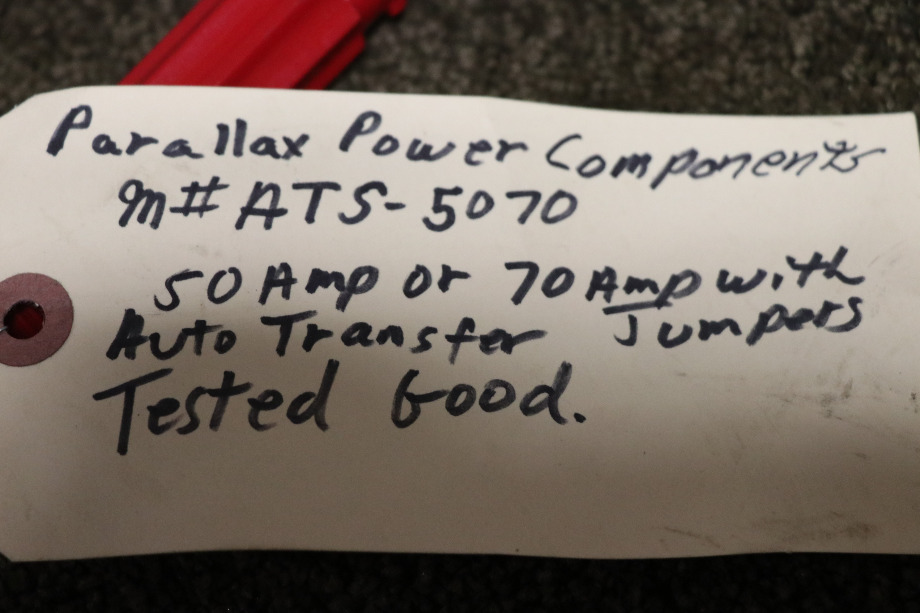 Parallax Power Components
M# ATS-5070
50 Amp or 70 Amp with
Auto Transfer Jumpers
Tested Good.